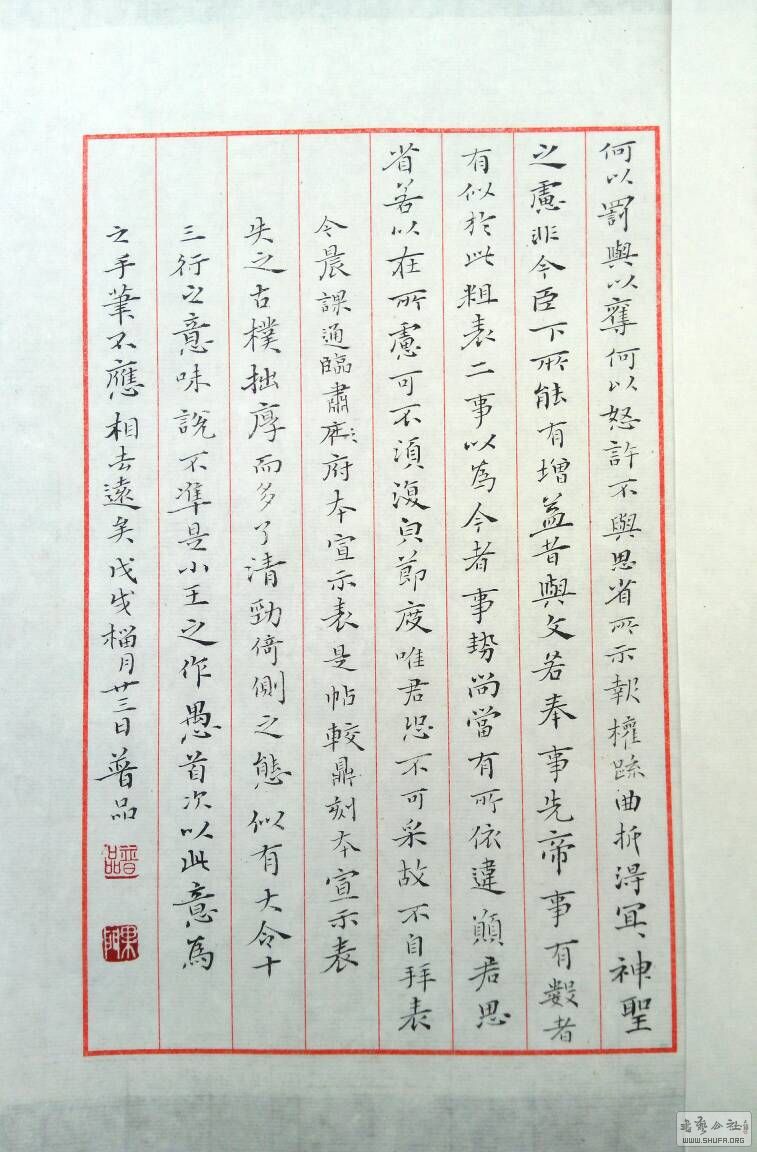 何以罰與以奪何以怒許不與思省所示報權疏曲折得宜宜神聖
之慮非今臣下所能有增益昔與文若奉事先帝事有數者
有似於此粗表二事以為今者事勢尚當有所依違願君思
省若以在所慮可不須復與節度唯君恐不可采故不自拜表
今晨課通臨肅府本宣示表是帖較鼎刻本宣示表
失之古樸拙厚而多了清勁倚側之態似有大令十
三行之意味說不準是小王之作愚首次以此意為
之手筆不應相去遠矣戊戌橊月廿三日普品
普品
WWW.SHUFA.ORG